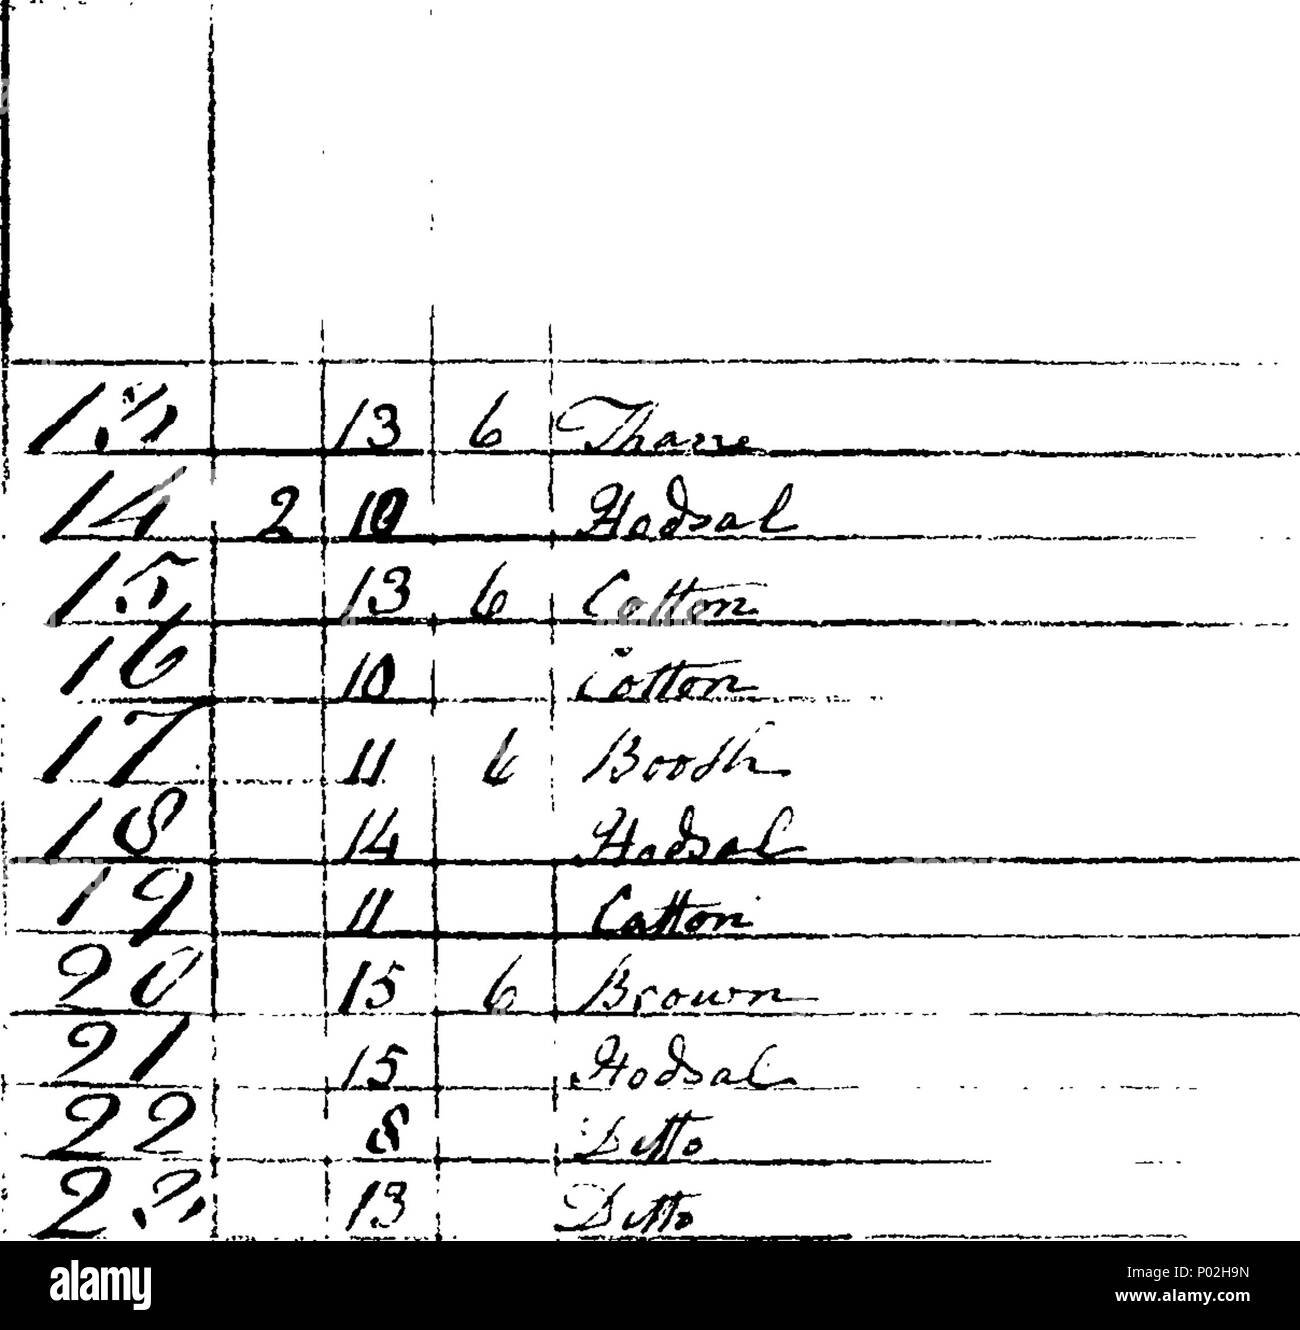 13 13 6 Thane
14 2 10 Hodsal
15 13 6 Cotton
16 10 Cotton
17 11 6 Booth
18 14 Hodsal
19 11 Catton
20 15 6 Brown
21 15 Hodsal
22 8 Ditto
23 13 Ditto
alamy
Image ID: P02H9N
www.alamy.com